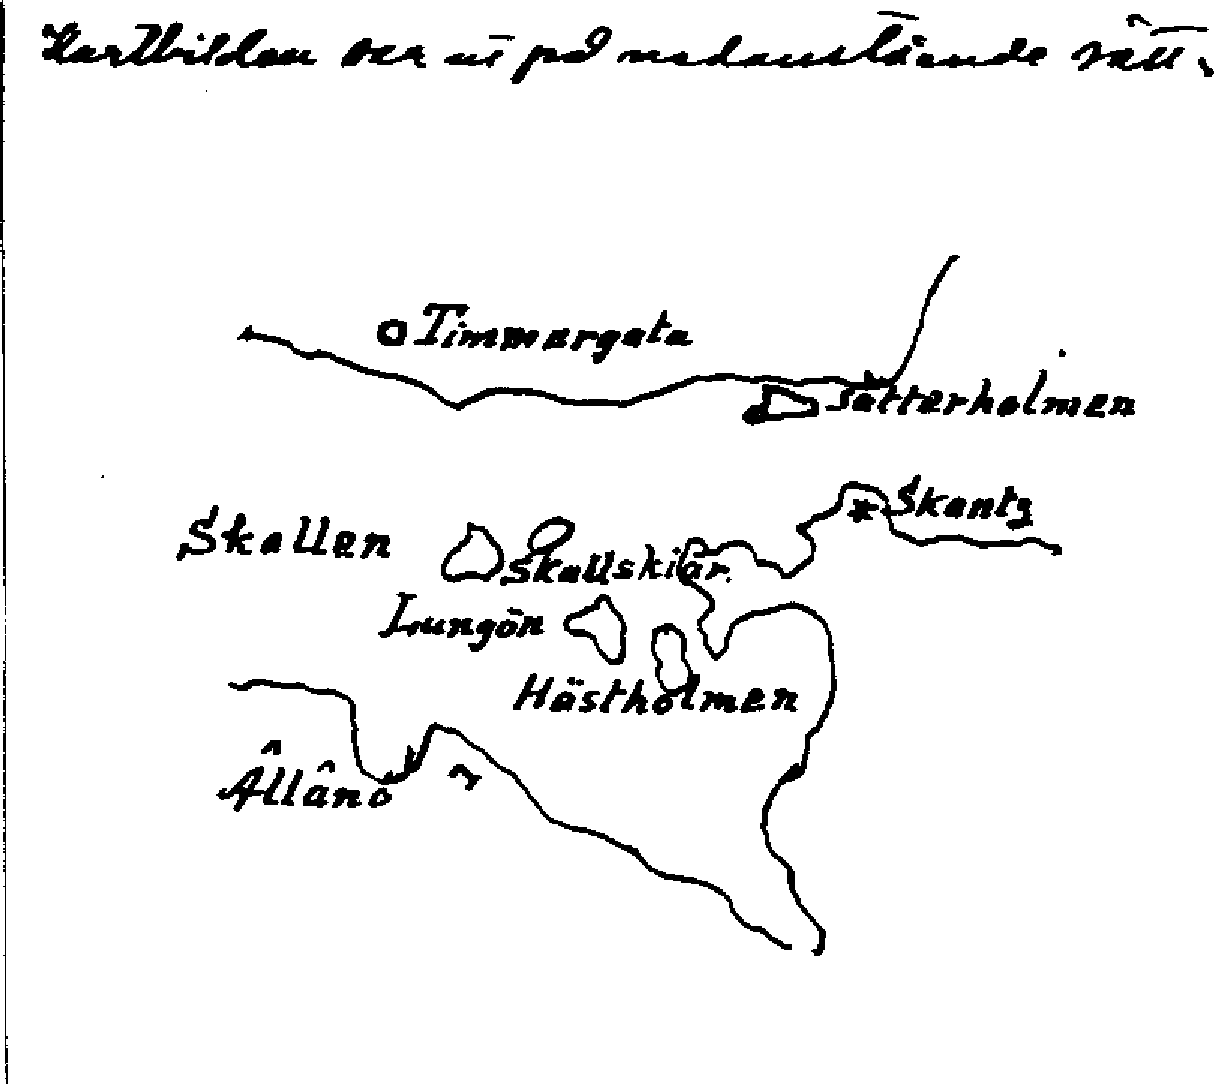 Kartbilden ser ut på nedanstående sätt.
Timmergata
Sätterholmen
Skantz
Skallen
Skallskiär.
Lungön
Hästholmen
Ållânö